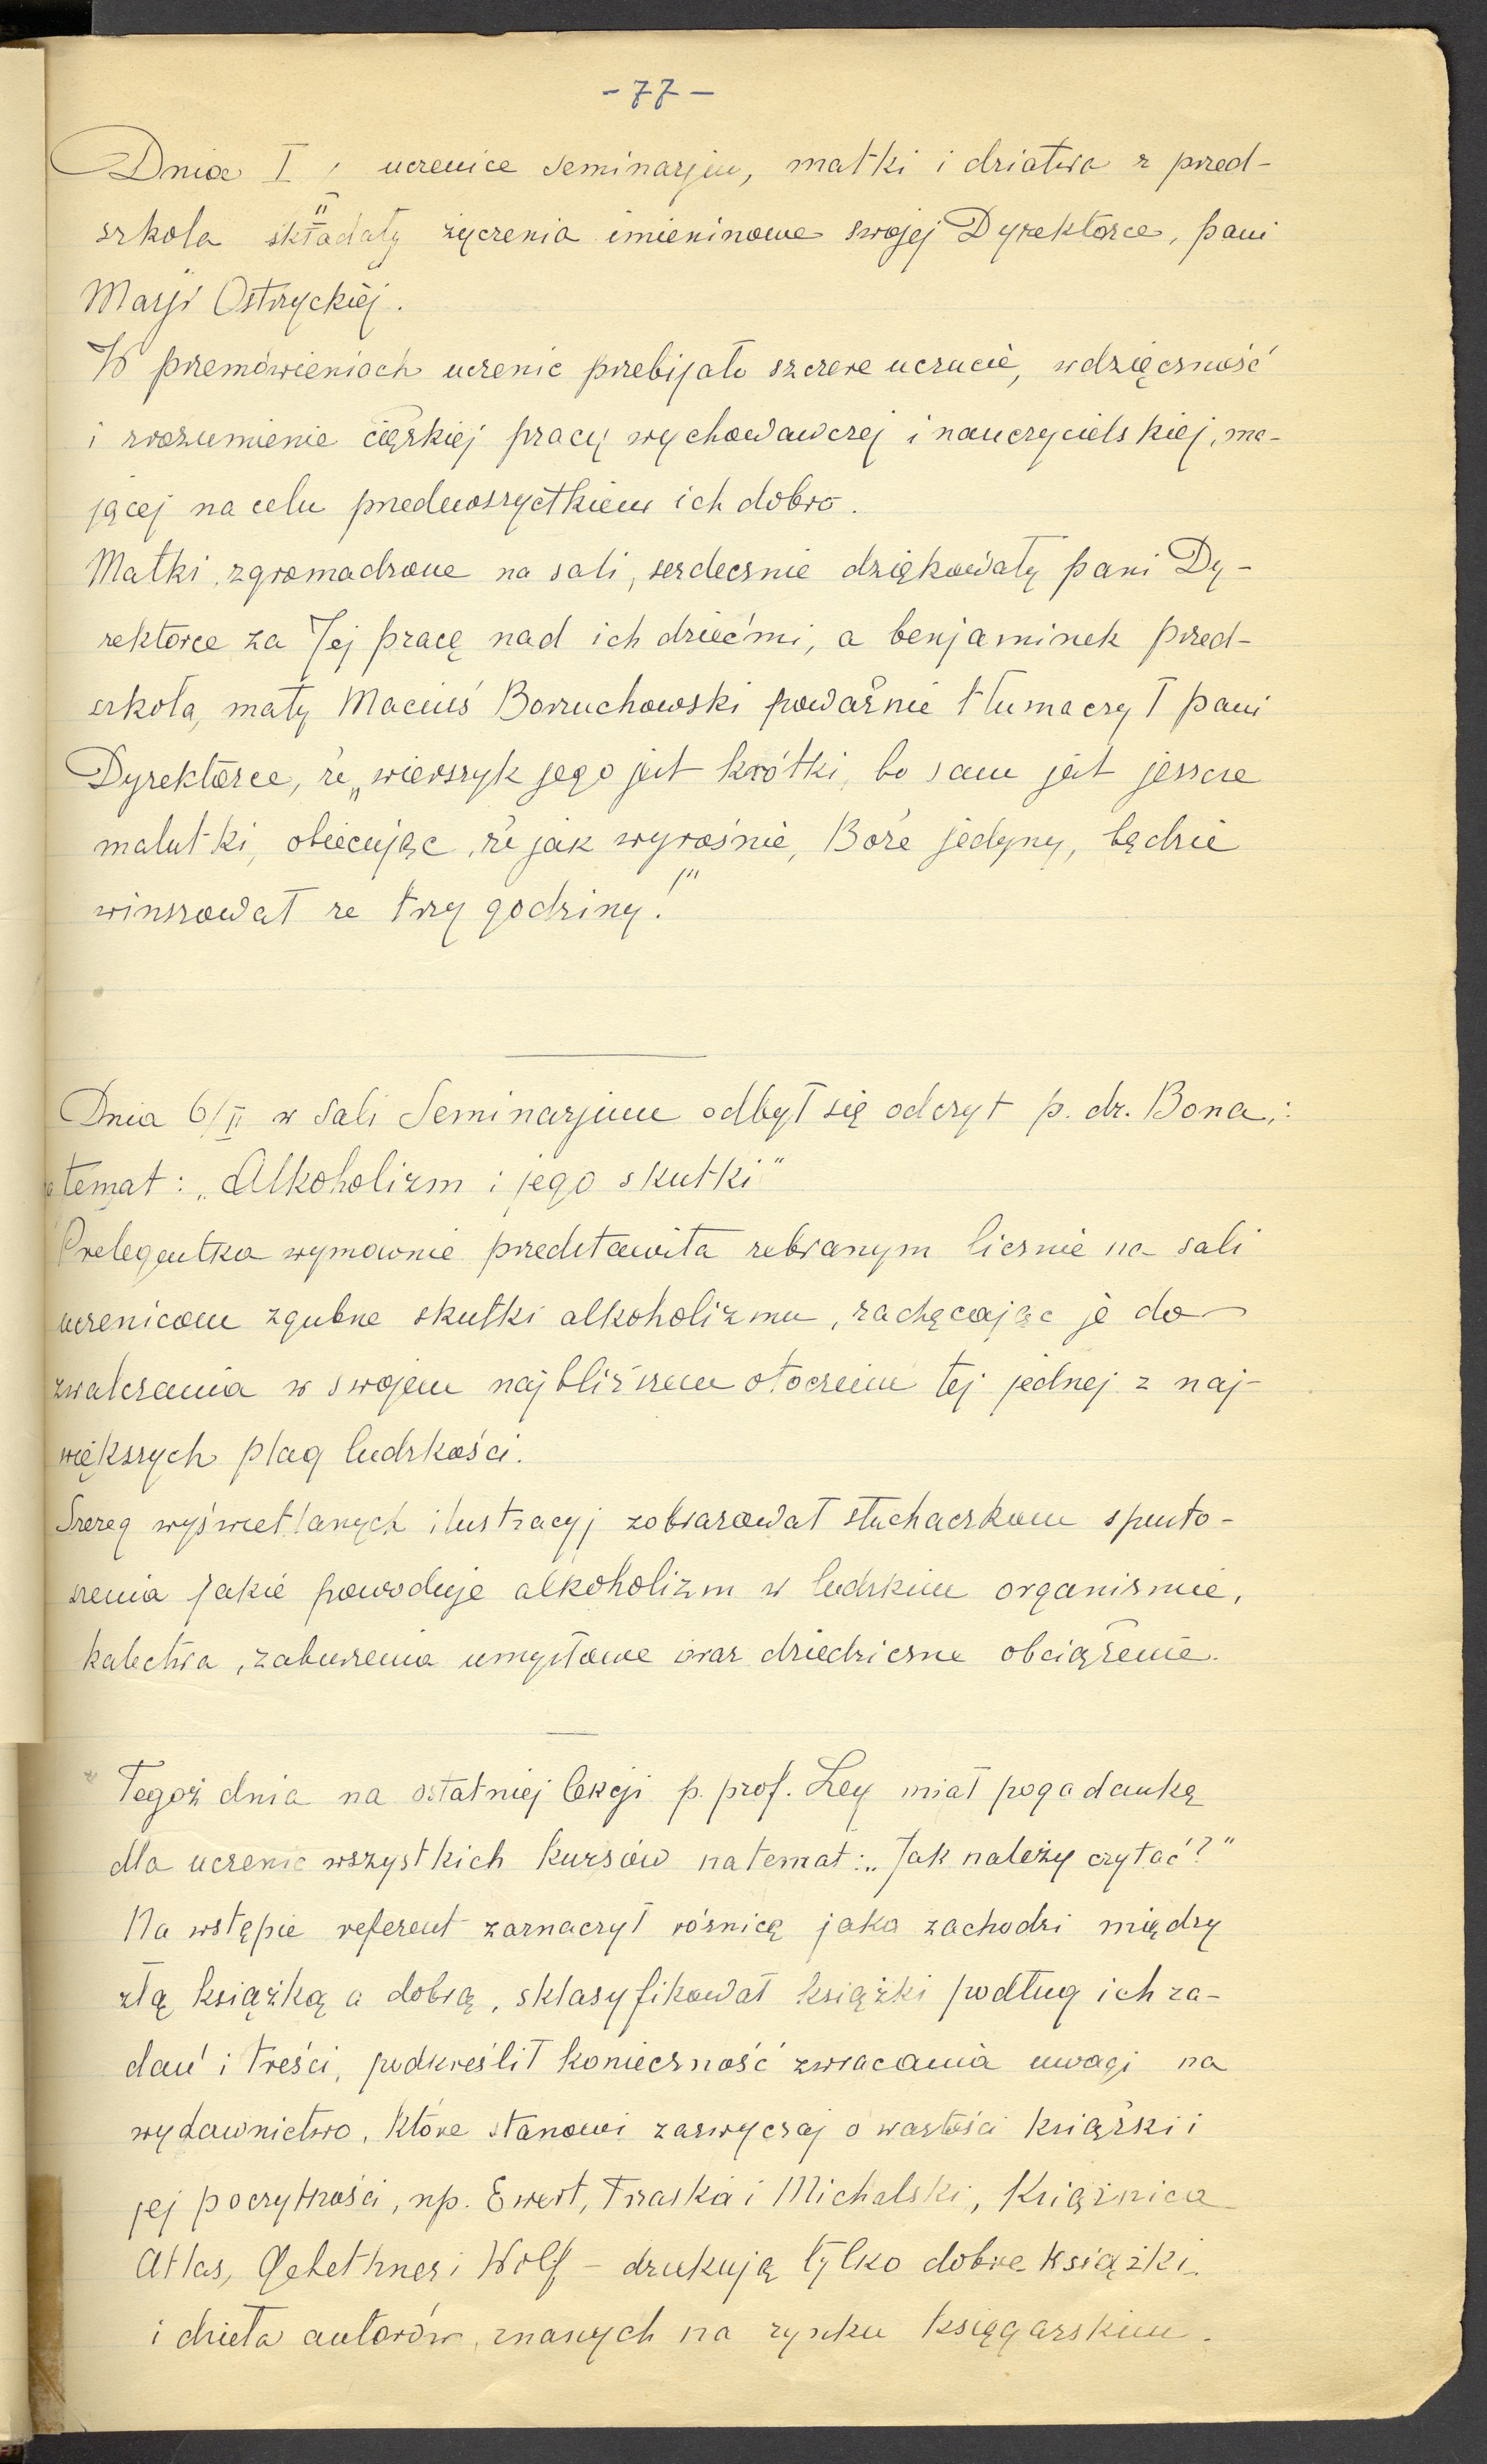 - 77 -
Dnia I / uczenice seminarjum, matki i dziatwa z przed-
II
szkola składały życzenia imieninowe swojej Dyrektorce, pani
Marji Ostryckiej.
W przemówieniach uczenic przebijało szczere uczucie, wdzięczność
i zrozumienie ciężkiej pracy wychowawczej i nauczycielskiej, ma-
jącej na celu przedewszystkiem ich dobro.
Matki, zgromadzone na sali, serdecznie dziękowały pani Dy-
rektorce za Jej pracę nad ich dziećmi, a benjaminek przed-
szkola, mały Maciuś Borzuchowski poważnie tłumaczył pani
Dyrektorce, że „wierszyk jego jest krótki, bo sam jest jeszcze
malutki, obiecując, że jak wyrośnie, Boże jedyny, będzie
winszował ze trzy godziny!"
Dnia 6/II w sali Seminarjum odbył się odczyt p. dr. Bona,:
temat: „Alkoholizm i jego skutki"
Prelegentka wymownie przedstawiła zebranym licznie na sali
uczenicom zgubne skutki alkoholizmu, zachęcając je do
zwalczania w swojem najbliższem otoczeniu tej jednej z naj-
większych plag ludzkości.
Szereg wyświetlanych ilustracyj zobrazował słuchaczkom spusto-
szenia jakie powoduje alkoholizm w ludzkim organizmie,
kalectwa, zaburzenia umysłowe oraz dziedziczne obciążenie.
Tegoż dnia na ostatniej lekcji p. prof. Ley miał pogadankę
dla uczenic wszystkich kursów na temat: „Jak należy czytać?"
Na wstępie referent zaznaczył różnicę jaka zachodzi między
złą książką a dobrą, sklasyfikował książki podług ich za-
dań i treści, podkreślił konieczność zwracania uwagi na
wydawnictwo, które stanowi zazwyczaj o wartości książki i
jej poczytności, np. Ewert, Trzaska i Michalski, Książnica
Atlas, Gebethner i Wolf – drukują tylko dobre książki
i dzieła autorów, znanych na rynku księgarskim.